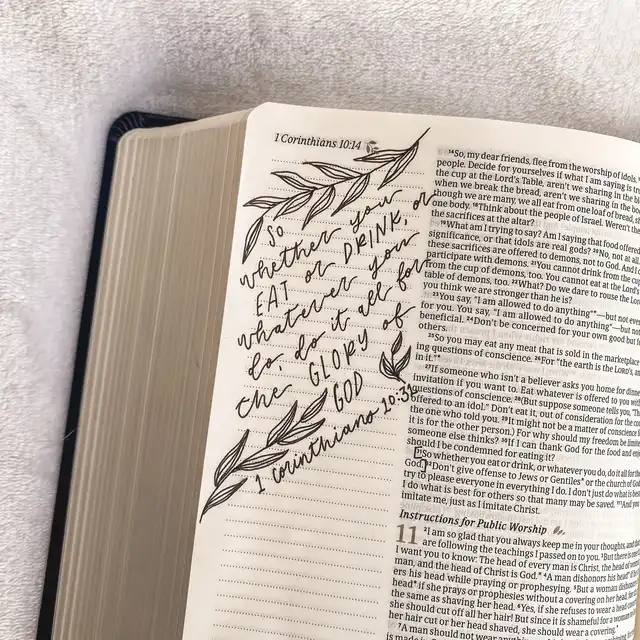 1 Corinthians 10:14
So
whether you
EAT or DRINK, or
whatever you
do, do it all for
the GLORY of
GOD
1 Corinthians 10:31
¹⁴So, my dear friends, flee from the worship of idols.
people. Decide for yourselves if what I am saying is
the cup at the Lord's Table, aren't we sharing in the
when we break the bread, aren't we sharing in the
though we are many, we all eat from one loaf of bread,
one body. ¹⁸Think about the people of Israel. Weren't
the sacrifices at the altar?
¹⁹What am I trying to say? Am I saying that food offered
significance, or that idols are real gods? ²⁰No, not at all.
these sacrifices are offered to demons, not to God. And
participate with demons. ²¹You cannot drink from the
from the cup of demons, too. You cannot eat at the Lord's
table of demons, too. ²²What? Do we dare to rouse the
you think we are stronger than he is?
²³You say, "I am allowed to do anything"*—but not
for you. You say, "I am allowed to do anything"—but not
beneficial. ²⁴Don't be concerned for your own good but
others.
²⁵So you may eat any meat that is sold in the marketplace
ing questions of conscience. ²⁶For "the earth is the LORD's,
in it."*
²⁷If someone who isn't a believer asks you home for
invitation if you want. Eat whatever is offered to you
questions of conscience. ²⁸(But suppose someone tells you,
offered to an idol." Don't eat it, out of consideration for the
the one who told you. ²⁹It might not be a matter of conscience
it is for the other person.) For why should my freedom be
someone else thinks? ³⁰If I can thank God for the food and
should I be condemned for eating it?
³¹So whether you eat or drink, or whatever you do, do it all for
God. ³²Don't give offense to Jews or Gentiles* or the church of
try to please everyone in everything I do. I don't just do what is
I do what is best for others so that many may be saved.
imitate me, just as I imitate Christ.
Instructions for Public Worship
11 ²I am so glad that you always keep me in your thoughts, and
are following the teachings I passed on to you. ³But there is
I want you to know: The head of every man is Christ, the head of
man, and the head of Christ is God.* ⁴A man dishonors his head*
ers his head while praying or prophesying. ⁵But a woman
head* if she prays or prophesies without a covering on her head,
the same as shaving her head. ⁶Yes, if she refuses to wear a head
she should cut off all her hair! But since it is shameful for a woman
her hair cut or her head shaved, she should wear a covering.*
⁷A man should not wear anything